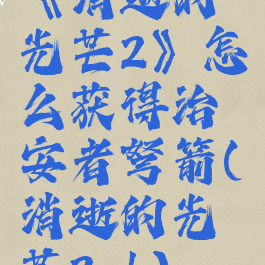 《消逝的
光芒2》怎
么获得治
安者弩箭(
消逝的光